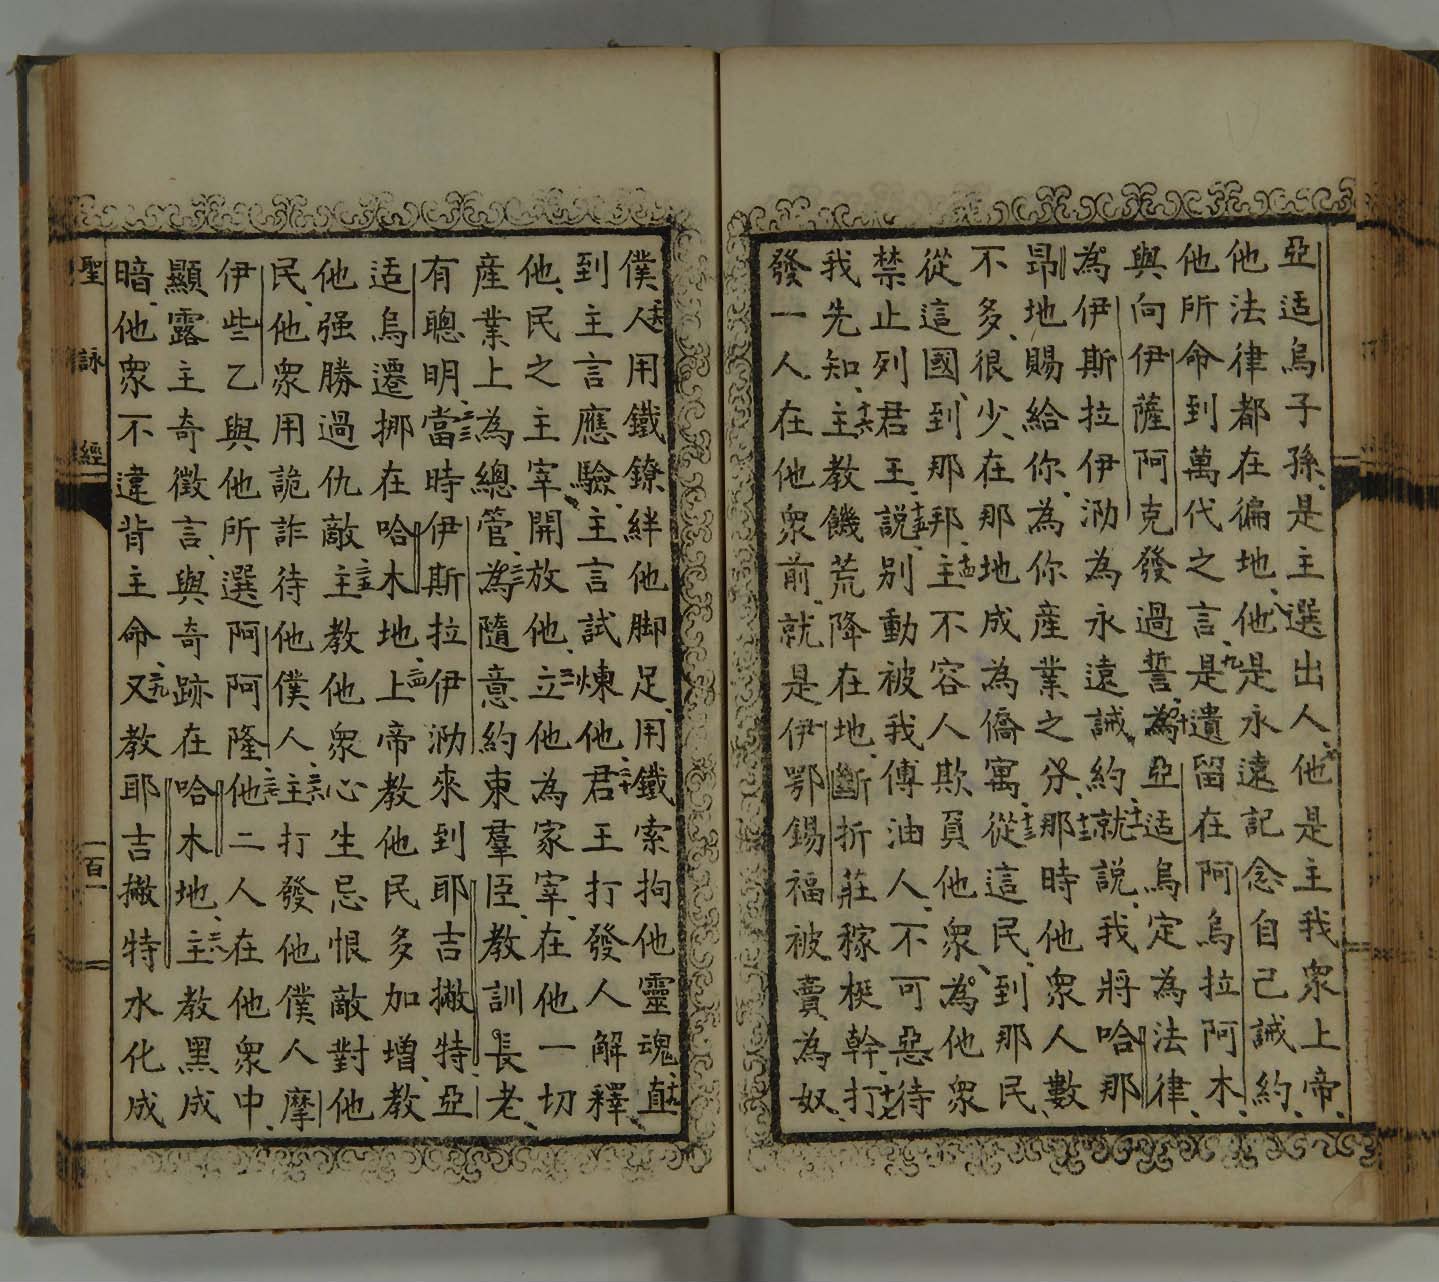 亞适烏子孫、是主選出人、七他是主我衆上帝、
他法律都在徧地、八他是永遠記念自己誡約、
他所命到萬代之言、九是遺留在阿烏拉阿木、
與向伊薩阿克發過誓、十為亞适烏定為法律、
為伊斯拉伊泐為永遠誡約、十一就說、我將哈那
昂地賜給你、為你産業之分、十二那時他衆人數
不多、很少、在那地成為僑寓、十三從這民、到那民、
從這國、到那邦、十四主不容人欺負他衆、為他衆
禁止列君王、十五說、別動被我傅油人、不可惡待
我先知、十六主教饑荒降在地、斷折莊稼梃幹、十七打
發一人在他衆前、就是伊鄂錫福被賣為奴、
僕、十八人用鐵鐐絆他脚足、用鐵索拘他靈魂、十九直
到主言應驗、主言試煉他、二十君王打發人解釋
他、民之主宰開放他、二一立他為家宰、在他一切
産業上為總管、二二為隨意約束羣臣、教訓長老、
有聰明、二三當時伊斯拉伊泐來到耶吉撇特、亞
适烏遷挪在哈木地上、二四上帝教他民多加增、教
他强勝過仇敵、二五主教他衆心生忌恨敵對他
民、他衆用詭詐待他僕人、二六主打發他僕人摩
伊些乙與他所選阿阿隆、二七他二人在他衆中、
顯露主奇徵言、與奇跡在哈木地、二八主教黑成
暗、他衆不違背主命、二九又教耶吉撇特水化成
聖詠經
百一